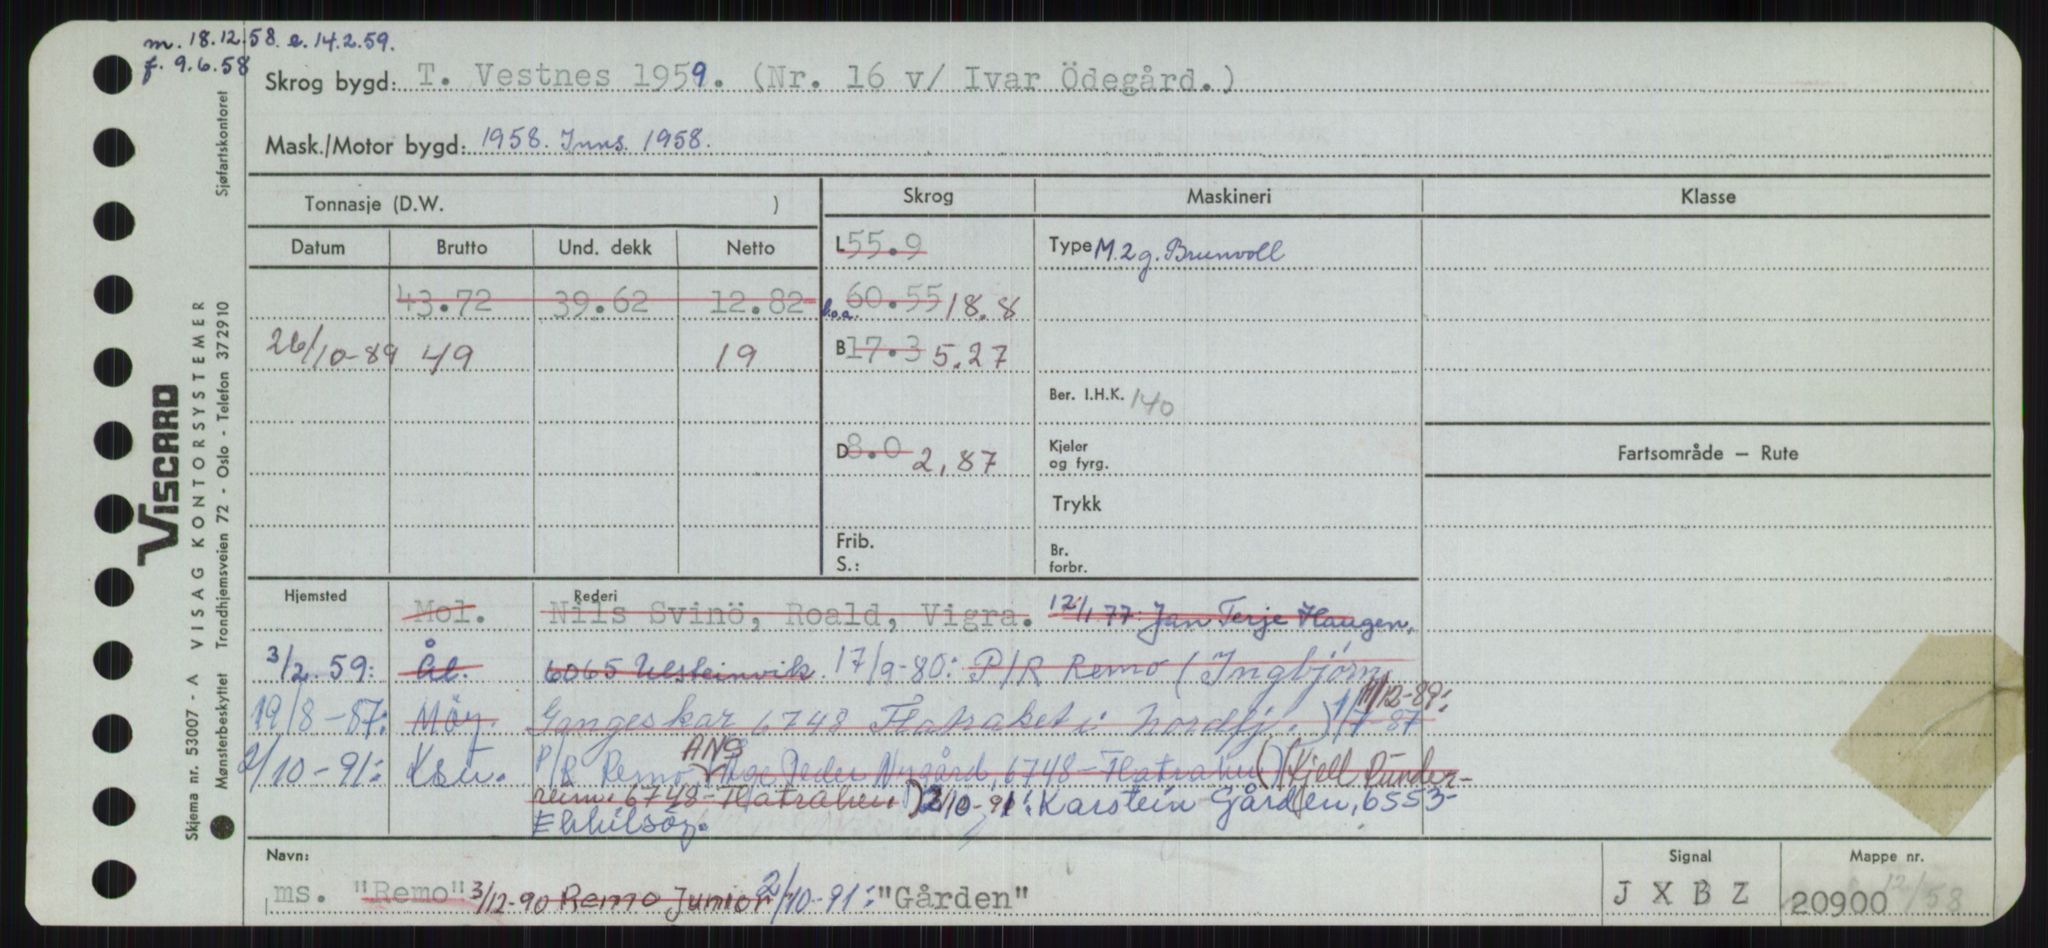 m. 18.12.58. e. 14.2.59.
f. 9.6.58
Skrog bygd: T. Vestnes 1959. (Nr. 16 v/ Ivar Ödegård.)
Mask./Motor bygd: 1958. Inns. 1958.
Tonnasje (D.W. )
Skrog Maskineri Klasse
Datum Brutto Und. dekk Netto
L 55.9 Type M. 2 g. Brunvoll
43.72 39.62 12.82 l.o.a. 60.55 18.8
26/10-89 49 19 B 17.3 5.27
Ber. I.H.K. 140
D 8.0 2,87 Kjeler
og fyrg.
Fartsområde — Rute
Trykk
Frib.
S.:
Br.
forbr.
Hjemsted Rederi
Mol. Nils Svinö, Roald, Vigra. 12/1 77: Jan Terje Haugen,
3/2. 59: Ål. 6065 Ulsteinvik. 17/9-80: P/R Remo (Ingbjörn
19/8-87: Möy. Gangeskar 6748 Flatraket i Nordfj.) 1/7-87 11/12-89:
2/10-91: Ksu. P/R Remo ANS Peder Nygård, 6748-Flatraket) (Kjell Runder-
reim. 6748-Flatraket) 2/10-91: Karstein Gården, 6553-
Ekkilsöy.
Navn: Signal Mappe nr.
ms. "Remo" 3/12-90 Remo Junior 2/10-91: "Gården" J X B Z 20900 12/58
VISCARD
VISAG KONTORSYSTEMER
Skjema nr. 53007 - A
Mønsterbeskyttet Trondhjemsveien 72 - Oslo - Telefon 372910
Sjøfartskontoret